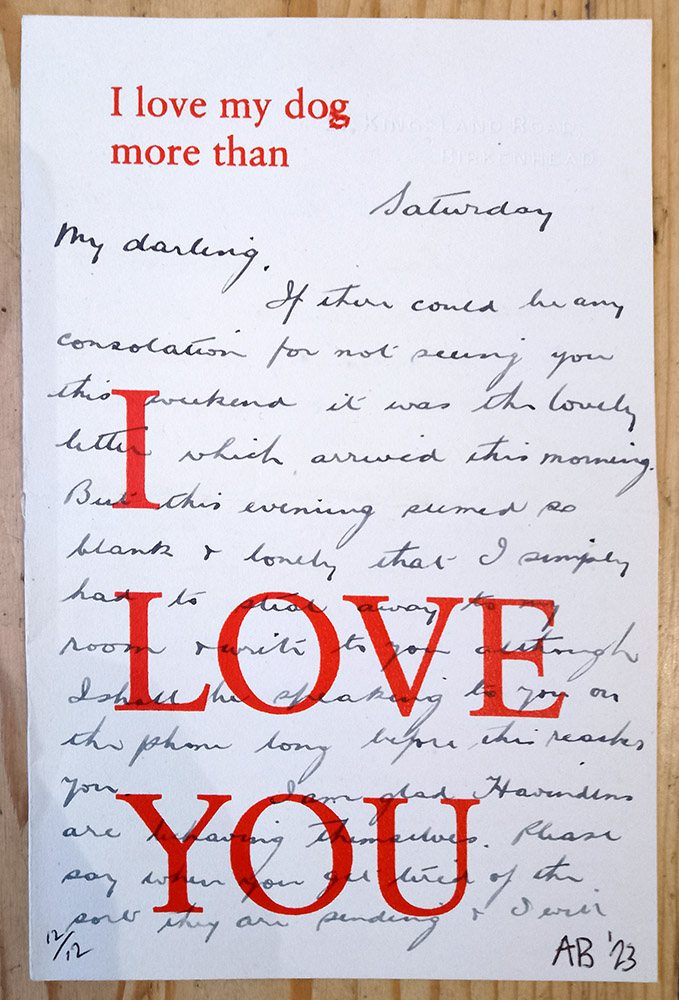 I love my dog
more than
KINGSLAND ROAD
BIRKENHEAD
Saturday
My darling,
If there could be any
consolation for not seeing you
this weekend it was the lovely
letter which arrived this morning.
But this evening seemed so
blank & lonely that I simply
had to steal away to my
room & write to you although
I shall be speaking to you on
the phone long before this reaches
you. I am glad Havindens
are behaving themselves. Please
say when you get tired of the
sort they are sending & I will
I
LOVE
YOU
12/12
AB '23